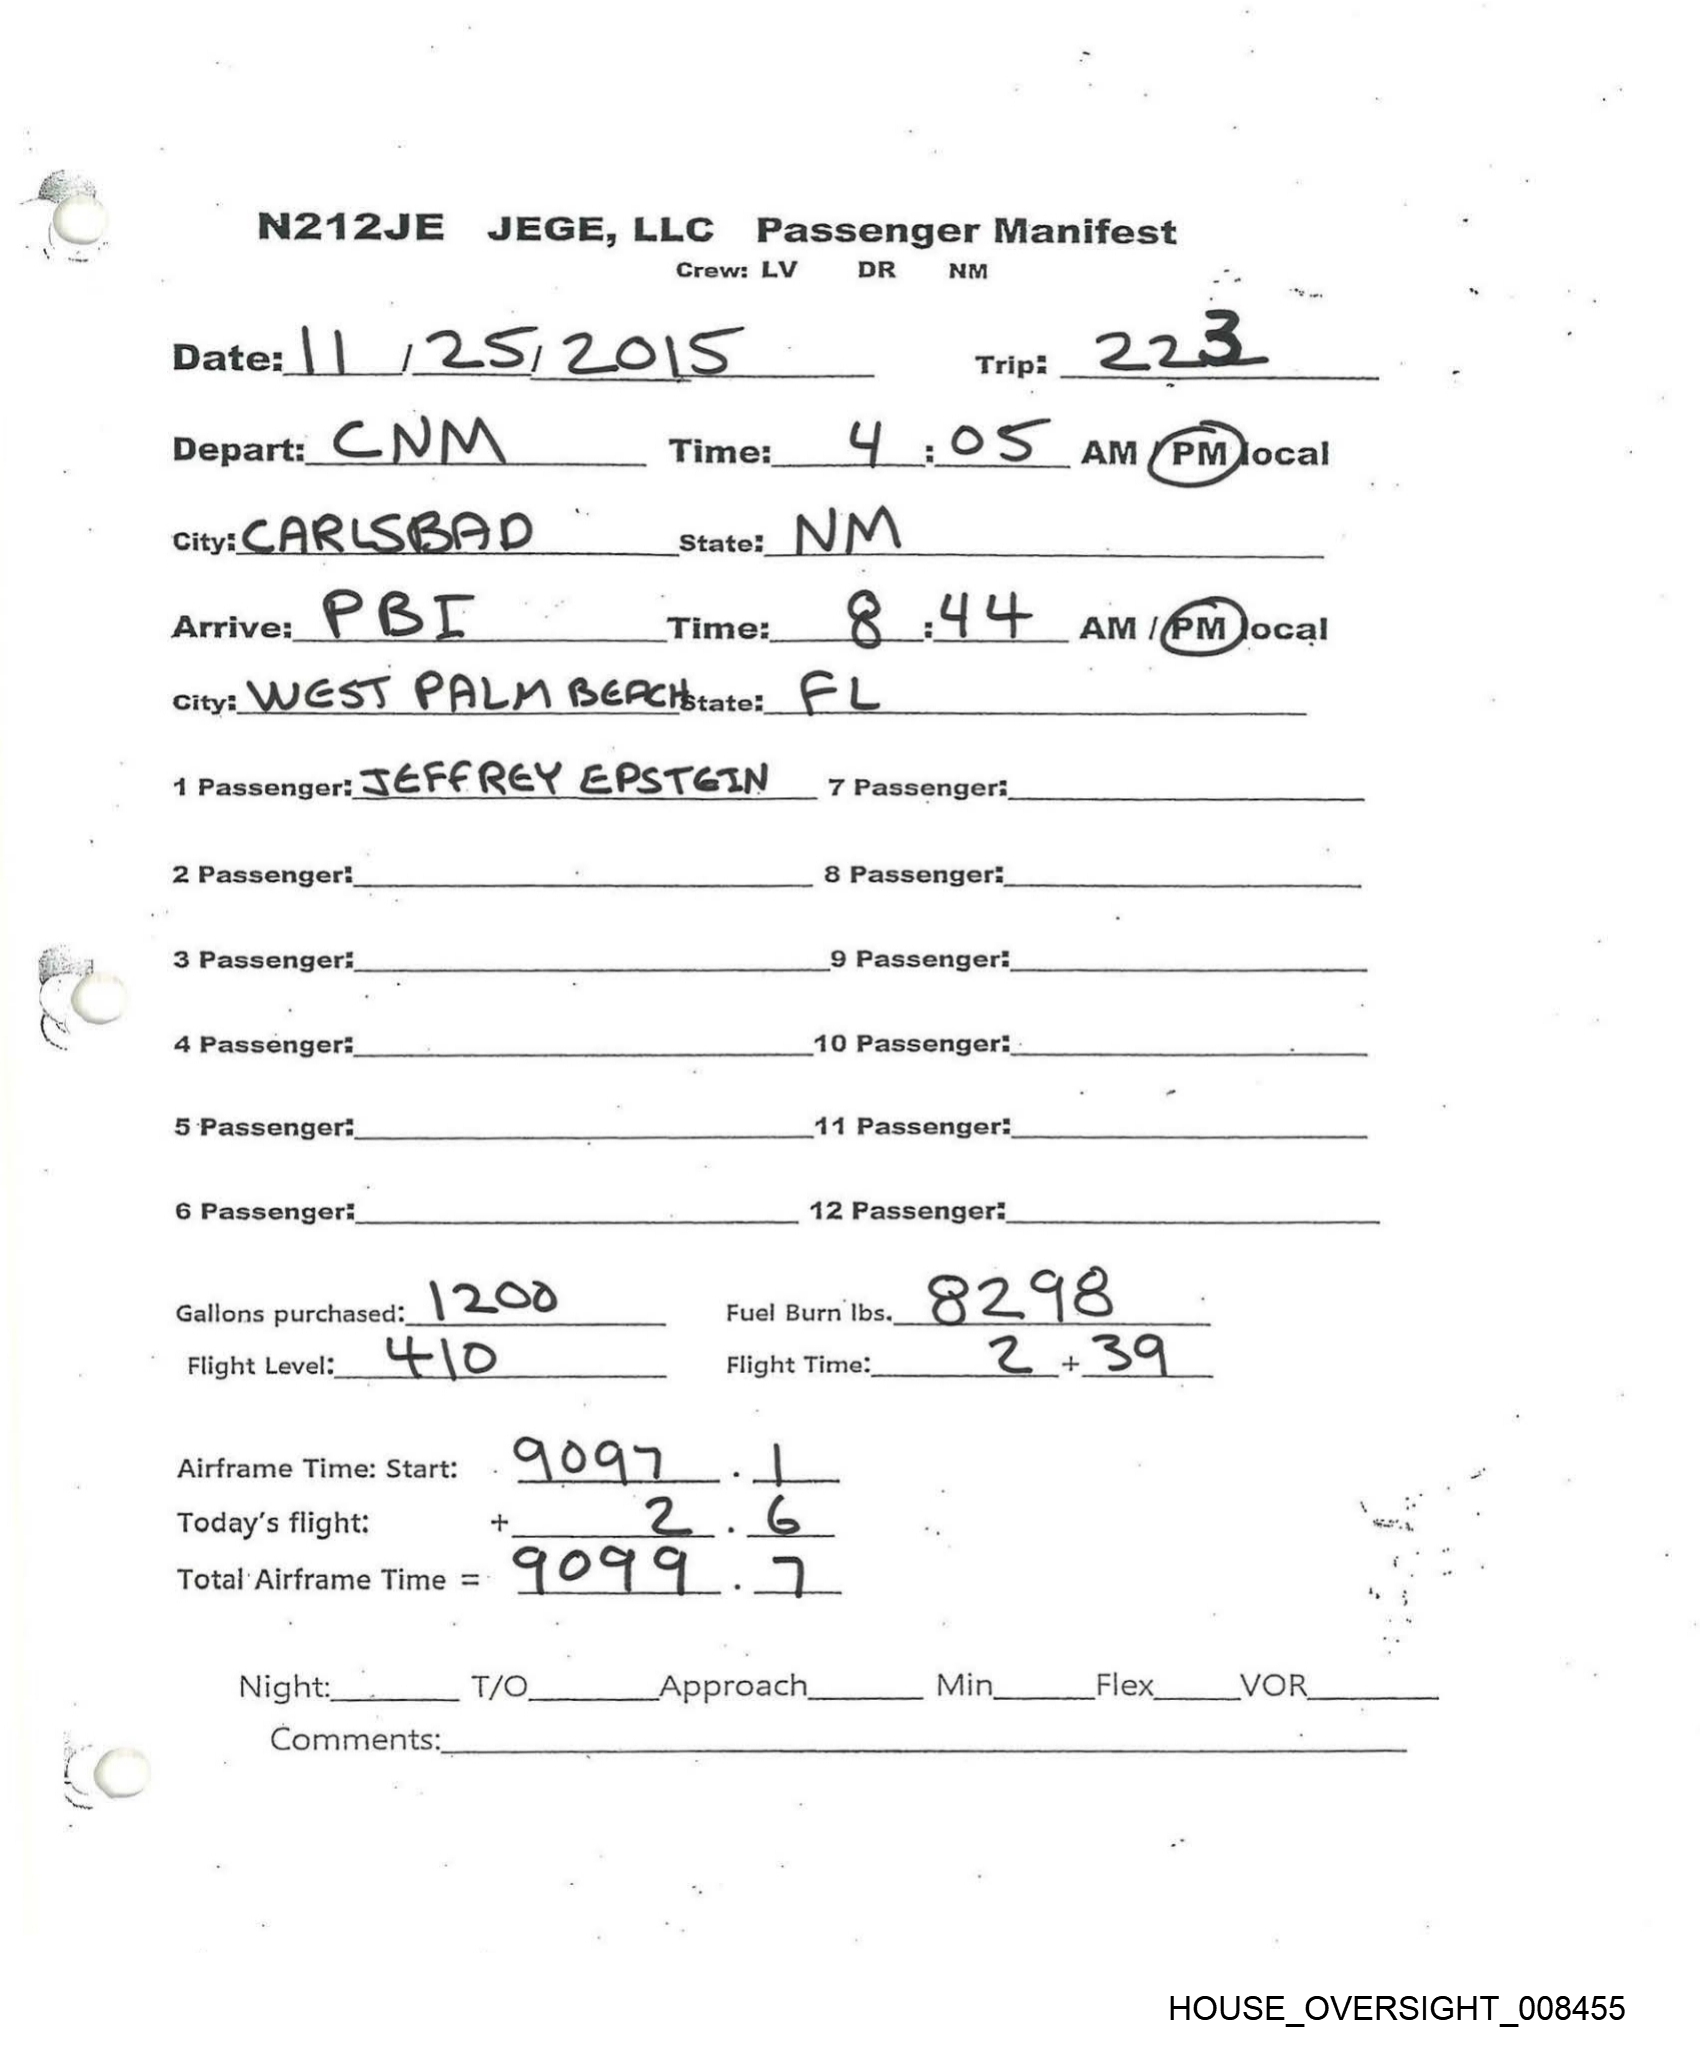 N212JE JEGE, LLC Passenger Manifest
Crew: LV DR NM
Date: 11 / 25 / 2015 Trip: 223
Depart: CNM Time: 4 : 05 AM / PM local
City: CARLSBAD State: NM
Arrive: PBI Time: 8 : 44 AM / PM local
City: WEST PALM BEACH State: FL
1 Passenger: JEFFREY EPSTEIN 7 Passenger:
2 Passenger: 8 Passenger:
3 Passenger: 9 Passenger:
4 Passenger: 10 Passenger:
5 Passenger: 11 Passenger:
6 Passenger: 12 Passenger:
Gallons purchased: 1200 Fuel Burn lbs. 8298
Flight Level: 410 Flight Time: 2 + 39
Airframe Time: Start: 9097 . 1
Today's flight: + 2 . 6
Total Airframe Time = 9099 . 7
Night: T/O Approach Min Flex VOR
Comments:
HOUSE_OVERSIGHT_008455